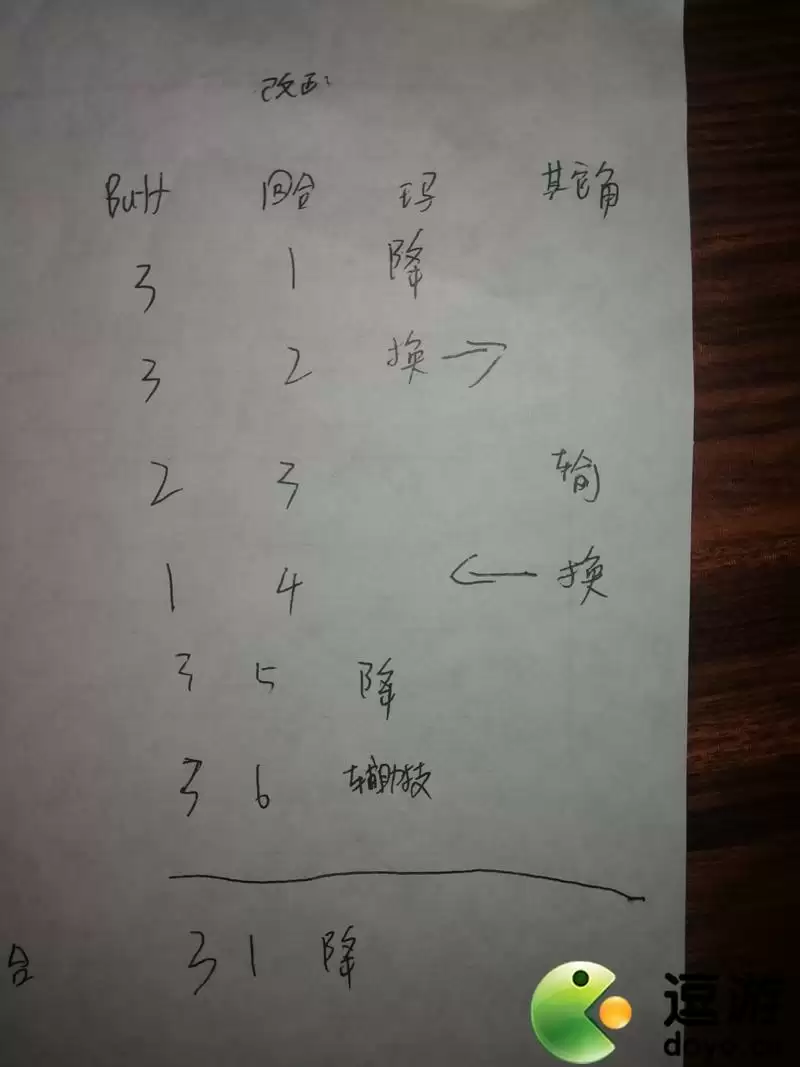 改后:
Buff 回合 玛 其它角
3 1 降
3 2 换→
2 3 输
1 4 ←换
3 5 降
3 6 辅助技
合 3 1 降
逗游
doyo.cn